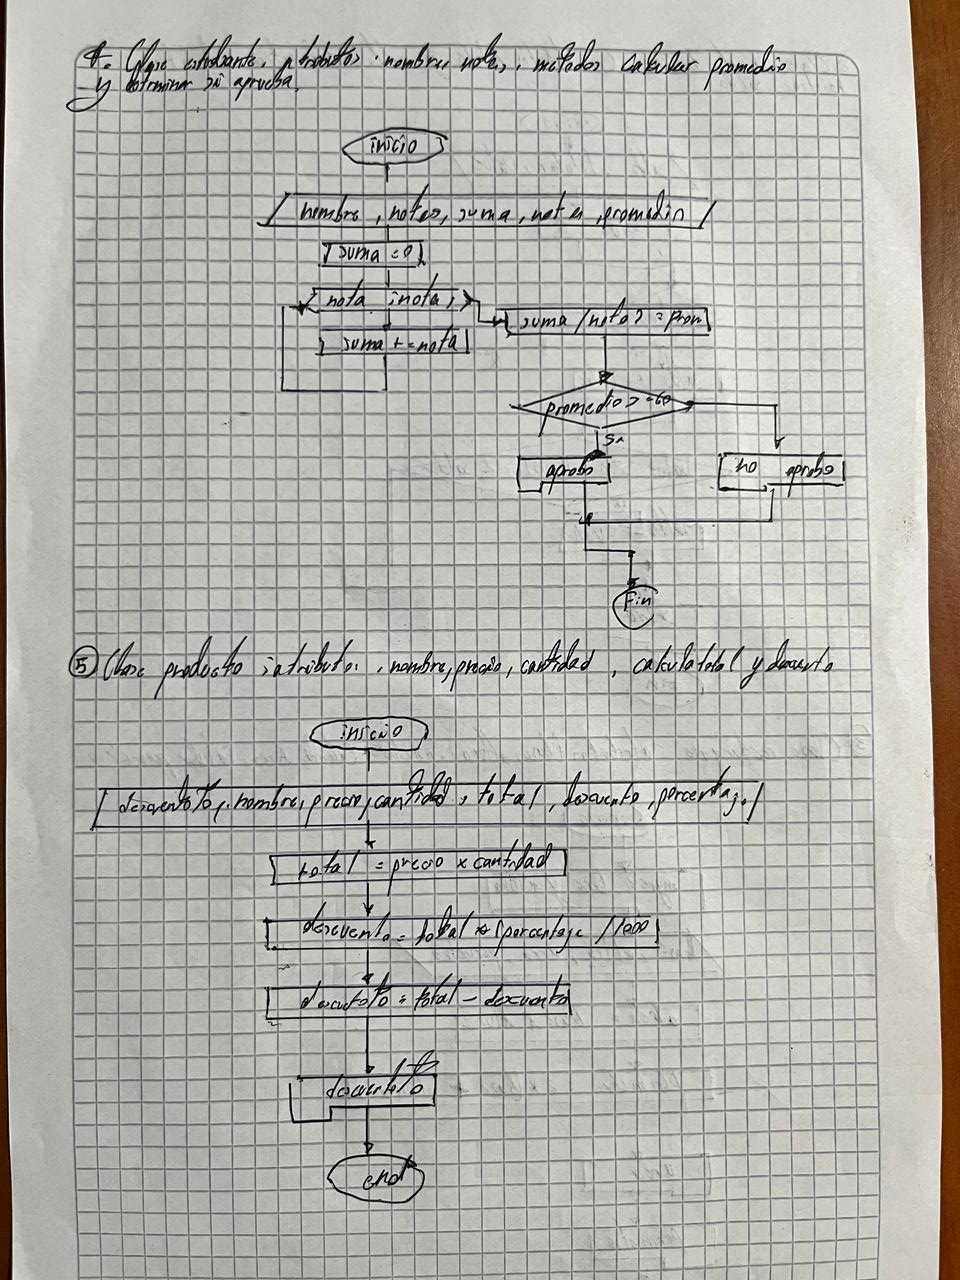 4. Clase estudiante, atributos: nombre, notas, metodos calcular promedio
y determinar si aprueba.
inicio
nombre, notas, suma, nota, promedio
suma = 0
nota in nota,
suma += nota
suma / notas = prom
promedio >= 60
si
aprobo
no aprobo
Fin
5 Clase producto atributos, nombre, precio, cantidad, calcula total y descuento
inicio
descuento to, nombre, precio, cantidad, total, descuento, porcentaje
total = precio x cantidad
descuento = total * (porcentaje / 100)
total - descuento
descuento
end